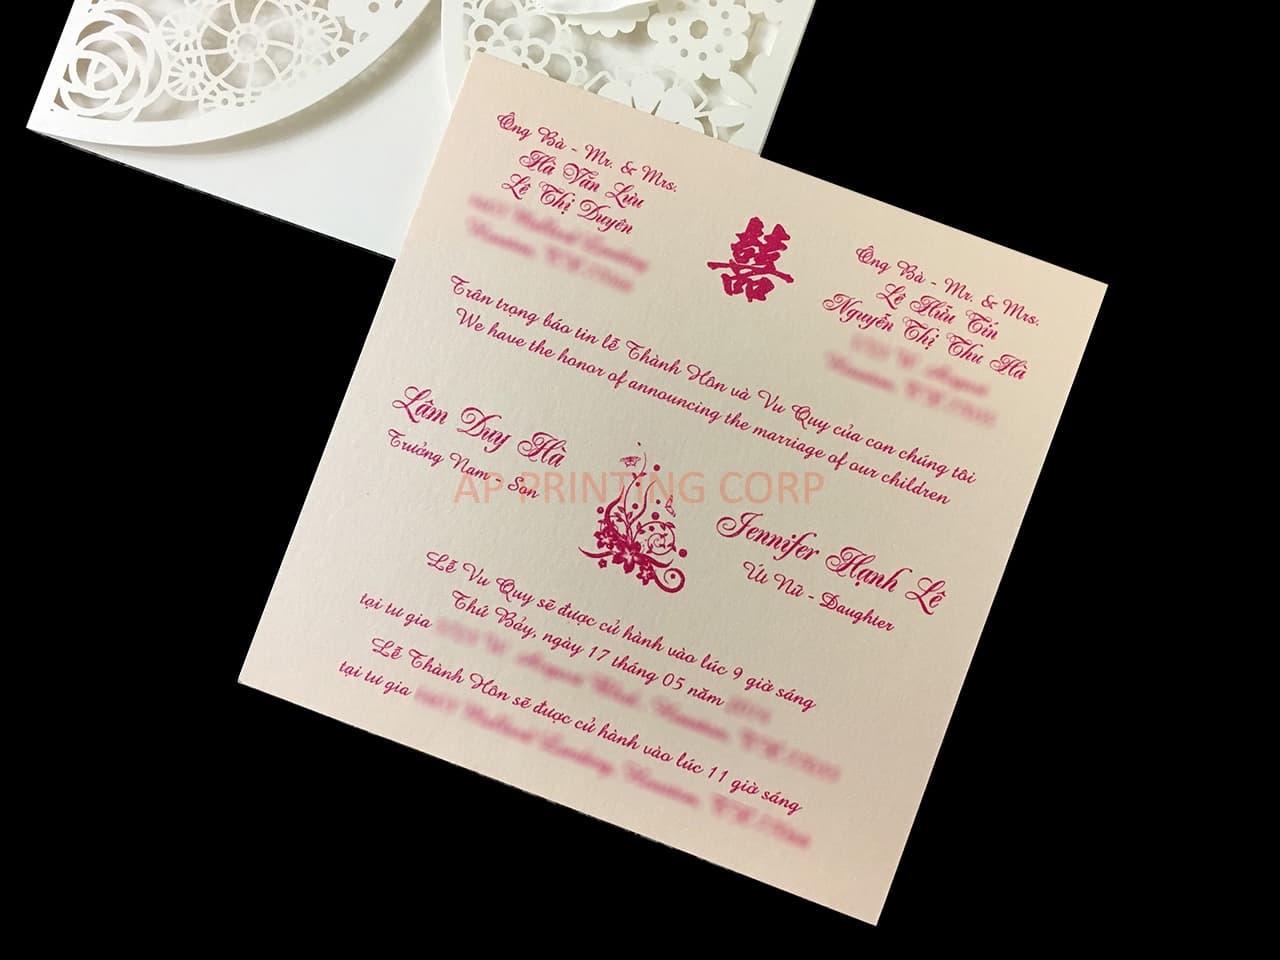 Ông Bà - Mr. & Mrs.
Hà Văn Lưu
Lê Thị Duyên
囍
Ông Bà - Mr. & Mrs.
Lê Hữu Tín
Nguyễn Thị Thu Hà
Trân trọng báo tin lễ Thành Hôn và Vu Quy của con chúng tôi
We have the honor of announcing the marriage of our children
Lâm Duy Hà
Trưởng Nam - Son
AP PRINTING CORP
Jennifer Hạnh Lê
Út Nữ - Daughter
Lễ Vu Quy sẽ được cử hành vào lúc 9 giờ sáng
Thứ Bảy, ngày 17 tháng 05 năm
tại tư gia
Lễ Thành Hôn sẽ được cử hành vào lúc 11 giờ sáng
tại tư gia